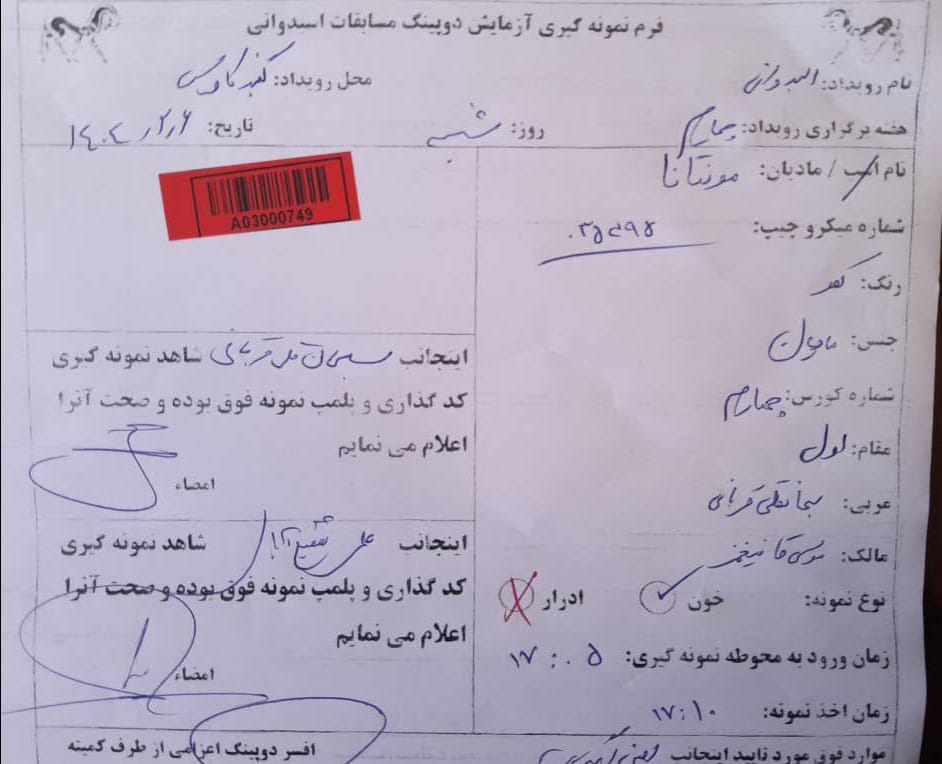 فرم نمونه گیری آزمایش دوپینگ مسابقات اسبدوانی
نام رویداد: اسبدوانی محل رویداد: گنبد کاووس
هفته برگزاری رویداد: چهارم روز: شنبه تاریخ: ۱۴۰۴/۲/۶
نام اسب / مادیان: مونتانا
A03000749
شماره میکرو چیپ:
رنگ: کهر
جنس: مادیان
شماره کورس: چهارم
مقام: اول
مربی: سبحانقلی قربانی
مالک:
نوع نمونه: خون ادرار
زمان ورود به محوطه نمونه گیری: ۱۷:۰۵
زمان اخذ نمونه: ۱۷:۱۰
موارد فوق مورد تایید اینجانب
اینجانب سبحان قلی قربانی شاهد نمونه گیری
کد گذاری و پلمپ نمونه فوق بوده و صحت آنرا
اعلام می نمایم
امضاء
اینجانب علی شاهد نمونه گیری
کد گذاری و پلمپ نمونه فوق بوده و صحت آنرا
اعلام می نمایم
امضاء
افسر دوپینگ اعزامی از طرف کمیته